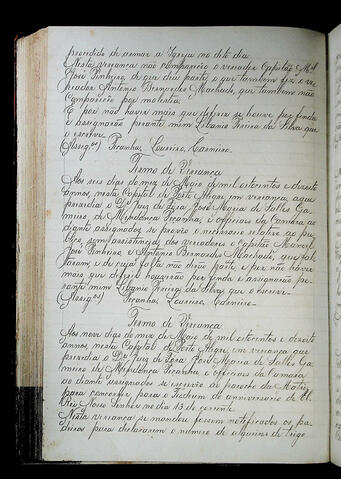 procedido de armar a Igreja no dito dia.
Nesta vereança não compareceo o vereador Capitão Mel
José Pinheiro, de que deu parte, o que tambem fez o ve
reador Antonio Bernardes Machado, que tambem não
compareceo por molestia.
E por não haver mais que deferir se houve por finda
e assignarão perante mim Libanio Pereira da Silva que
o escrevi.
(Assigos) Peçanha, Loureiro, Carneiro.
Termo de Vereança
Aos seis dias do mez de Maio de mil oitocentos e dezesete
annos, nesta Capital de Porto Alegre em vereança, aqui
presidio o Dr Juiz de Fora José Maria de Salles Ga
meiro, de Mendonça Peçanha, e officiaes da Camara ao
diante assignados se proveo o necessario relativo ao pu
blico, sem assistencia dos vereadores o Capitão Manoel
José Pinheiro, e Antonio Bernardes Machado, que fal
taram, e de cuja falta não derão parte, e por não haver
mais que deferir houverão por finda e assignarão pe
rante mim Libanio Pereira da Silva, que o escrevi.
(Assigos) Peçanha, Loureiro, Carneiro.
Termo de Vereança
Aos nove dias do mez de Maio de mil oitocentos e dezesete
annos, nesta Capital de Porto Alegre em vereança que
presidio o Dr Juiz de Fora José Maria de Salles Ga
meiro de Mendonça Peçanha e officiaes da Camara
ao diante assignados se escreveo ao parocho da Matriz
para concorrer para o Tedeum do anniversario de El
Rei Nosso Senhor no dia 13 do corrente.
Nesta vereança se mandou fossem notificados os pa
deiros para declararem o numero de alqueires de trigo